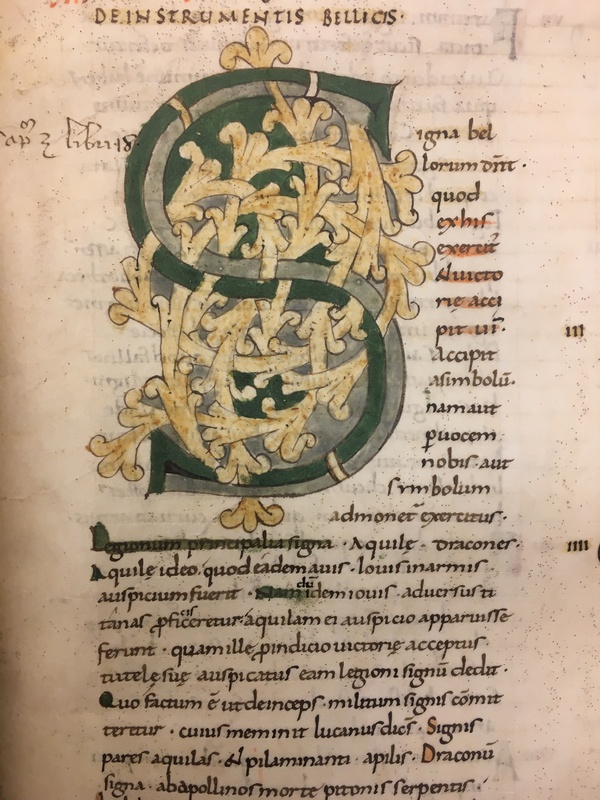 DE INSTRUMENTIS BELLICIS·
Signa bel
lorum dn̄t·
quod
ex his
exercit᷒
& uicto
rię acci
pit ui̅· III
Accipit
a simbolū·
nam aut
ꝑ uocem
nobis· aut
symbolum
admonet̄ exercitus·
Legionum principalia signa · Aquilę · Dracones· IIII
Aquilę ideo· quod eadem auis · Iouis in armis ·
auspicium fuerit · idem iouis · aduersus ti
tanas ꝓficisceretur· aquilam ei auspicio apparuisse
ferunt · quam ille ꝓ indicio uictorię acceptus
tutelę suę auspicatus eam legioni signū dedit ·
Quo factum ē ut deinceps· militum signis cōmit
teretur · cuius meminit lucanus dicēs · Signis
pares aquilas · & pila minantia pilis · Draconū
signa · ab apolline morte pitonis serpentis ·